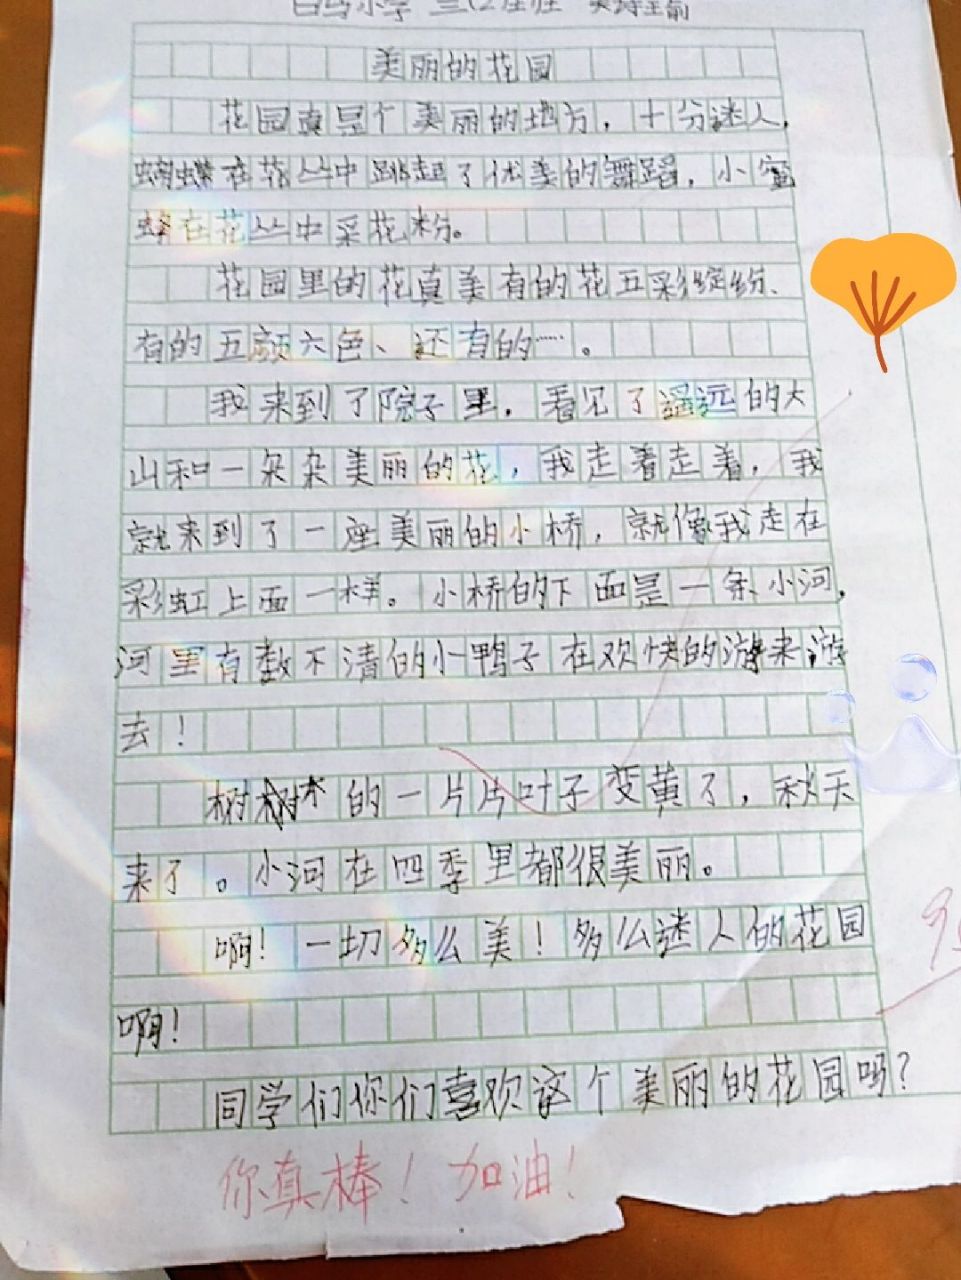 美丽的花园
花园真是个美丽的地方，十分迷人，
蝴蝶在花丛中跳起了优美的舞蹈，小蜜
蜂在花丛中采花粉。
花园里的花真美有的花五彩缤纷、
有的五颜六色、还有的……。
我来到了院子里，看见了遥远的大
山和一朵朵美丽的花，我走着走着，我
就来到了一座美丽的小桥，就像我走在
彩虹上面一样。小桥的下面是一条小河，
河里有数不清的小鸭子在欢快的游来游
去！
树木的一片片叶子变黄了，秋天
来了。小河在四季里都很美丽。
啊！一切多么美！多么迷人的花园
啊！
同学们你们喜欢这个美丽的花园吗？
你真棒！加油！